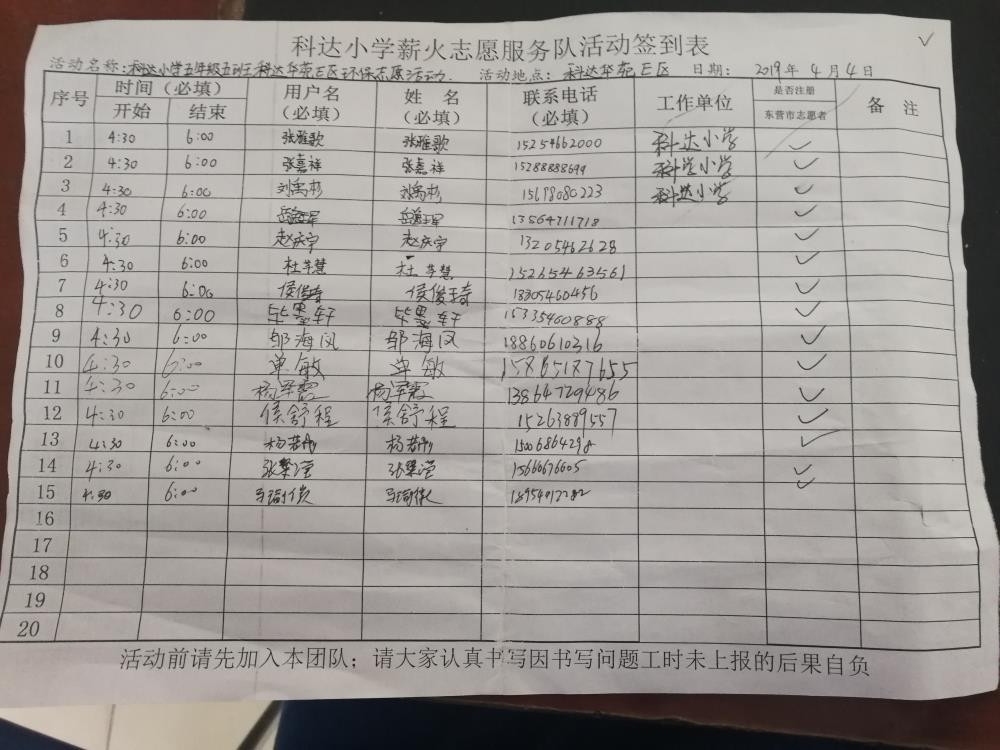 科达小学薪火志愿服务队活动签到表
活动名称:科达小学五年级五班科达华苑E区环保志愿活动. 活动地点: 科达华苑E区 日期: 2019年4月4日
序号 时间(必填) 用户名(必填) 姓名(必填) 联系电话(必填) 工作单位 是否注册东营市志愿者 备注
开始 结束
1 4:30 6:00 张雅歌 张雅歌 15254662000 科达小学 ✓
2 4:30 6:00 张嘉祥 张嘉祥 15288888699 科学小学 ✓
3 4:30 6:00 刘禹杉 刘禹杉 15698080223 科达小学 ✓
4 4:30 6:00 13564711718 ✓
5 4:30 6:00 赵庆宇 赵庆宇 13205462628 ✓
6 4:30 6:00 杜芊慧 杜芊慧 15265463561 ✓
7 4:30 6:00 侯俊琦 侯俊琦 18305460456 ✓
8 4:30 6:00 毕墨轩 毕墨轩 15335460888 ✓
9 4:30 6:00 邹海凤 邹海凤 18860610316 ✓
10 4:30 6:00 单敏 单敏 15865187655 ✓
11 4:30 6:00 杨军霞 杨军霞 13864729486 ✓
12 4:30 6:00 侯舒程 侯舒程 15263889557 ✓
13 4:30 6:00 杨若彤 杨若彤 15006864298 ✓
14 4:30 6:00 15660676605 ✓
15 4:30 6:00 ✓
16
17
18
19
20
活动前请先加入本团队;请大家认真书写因书写问题工时未上报的后果自负